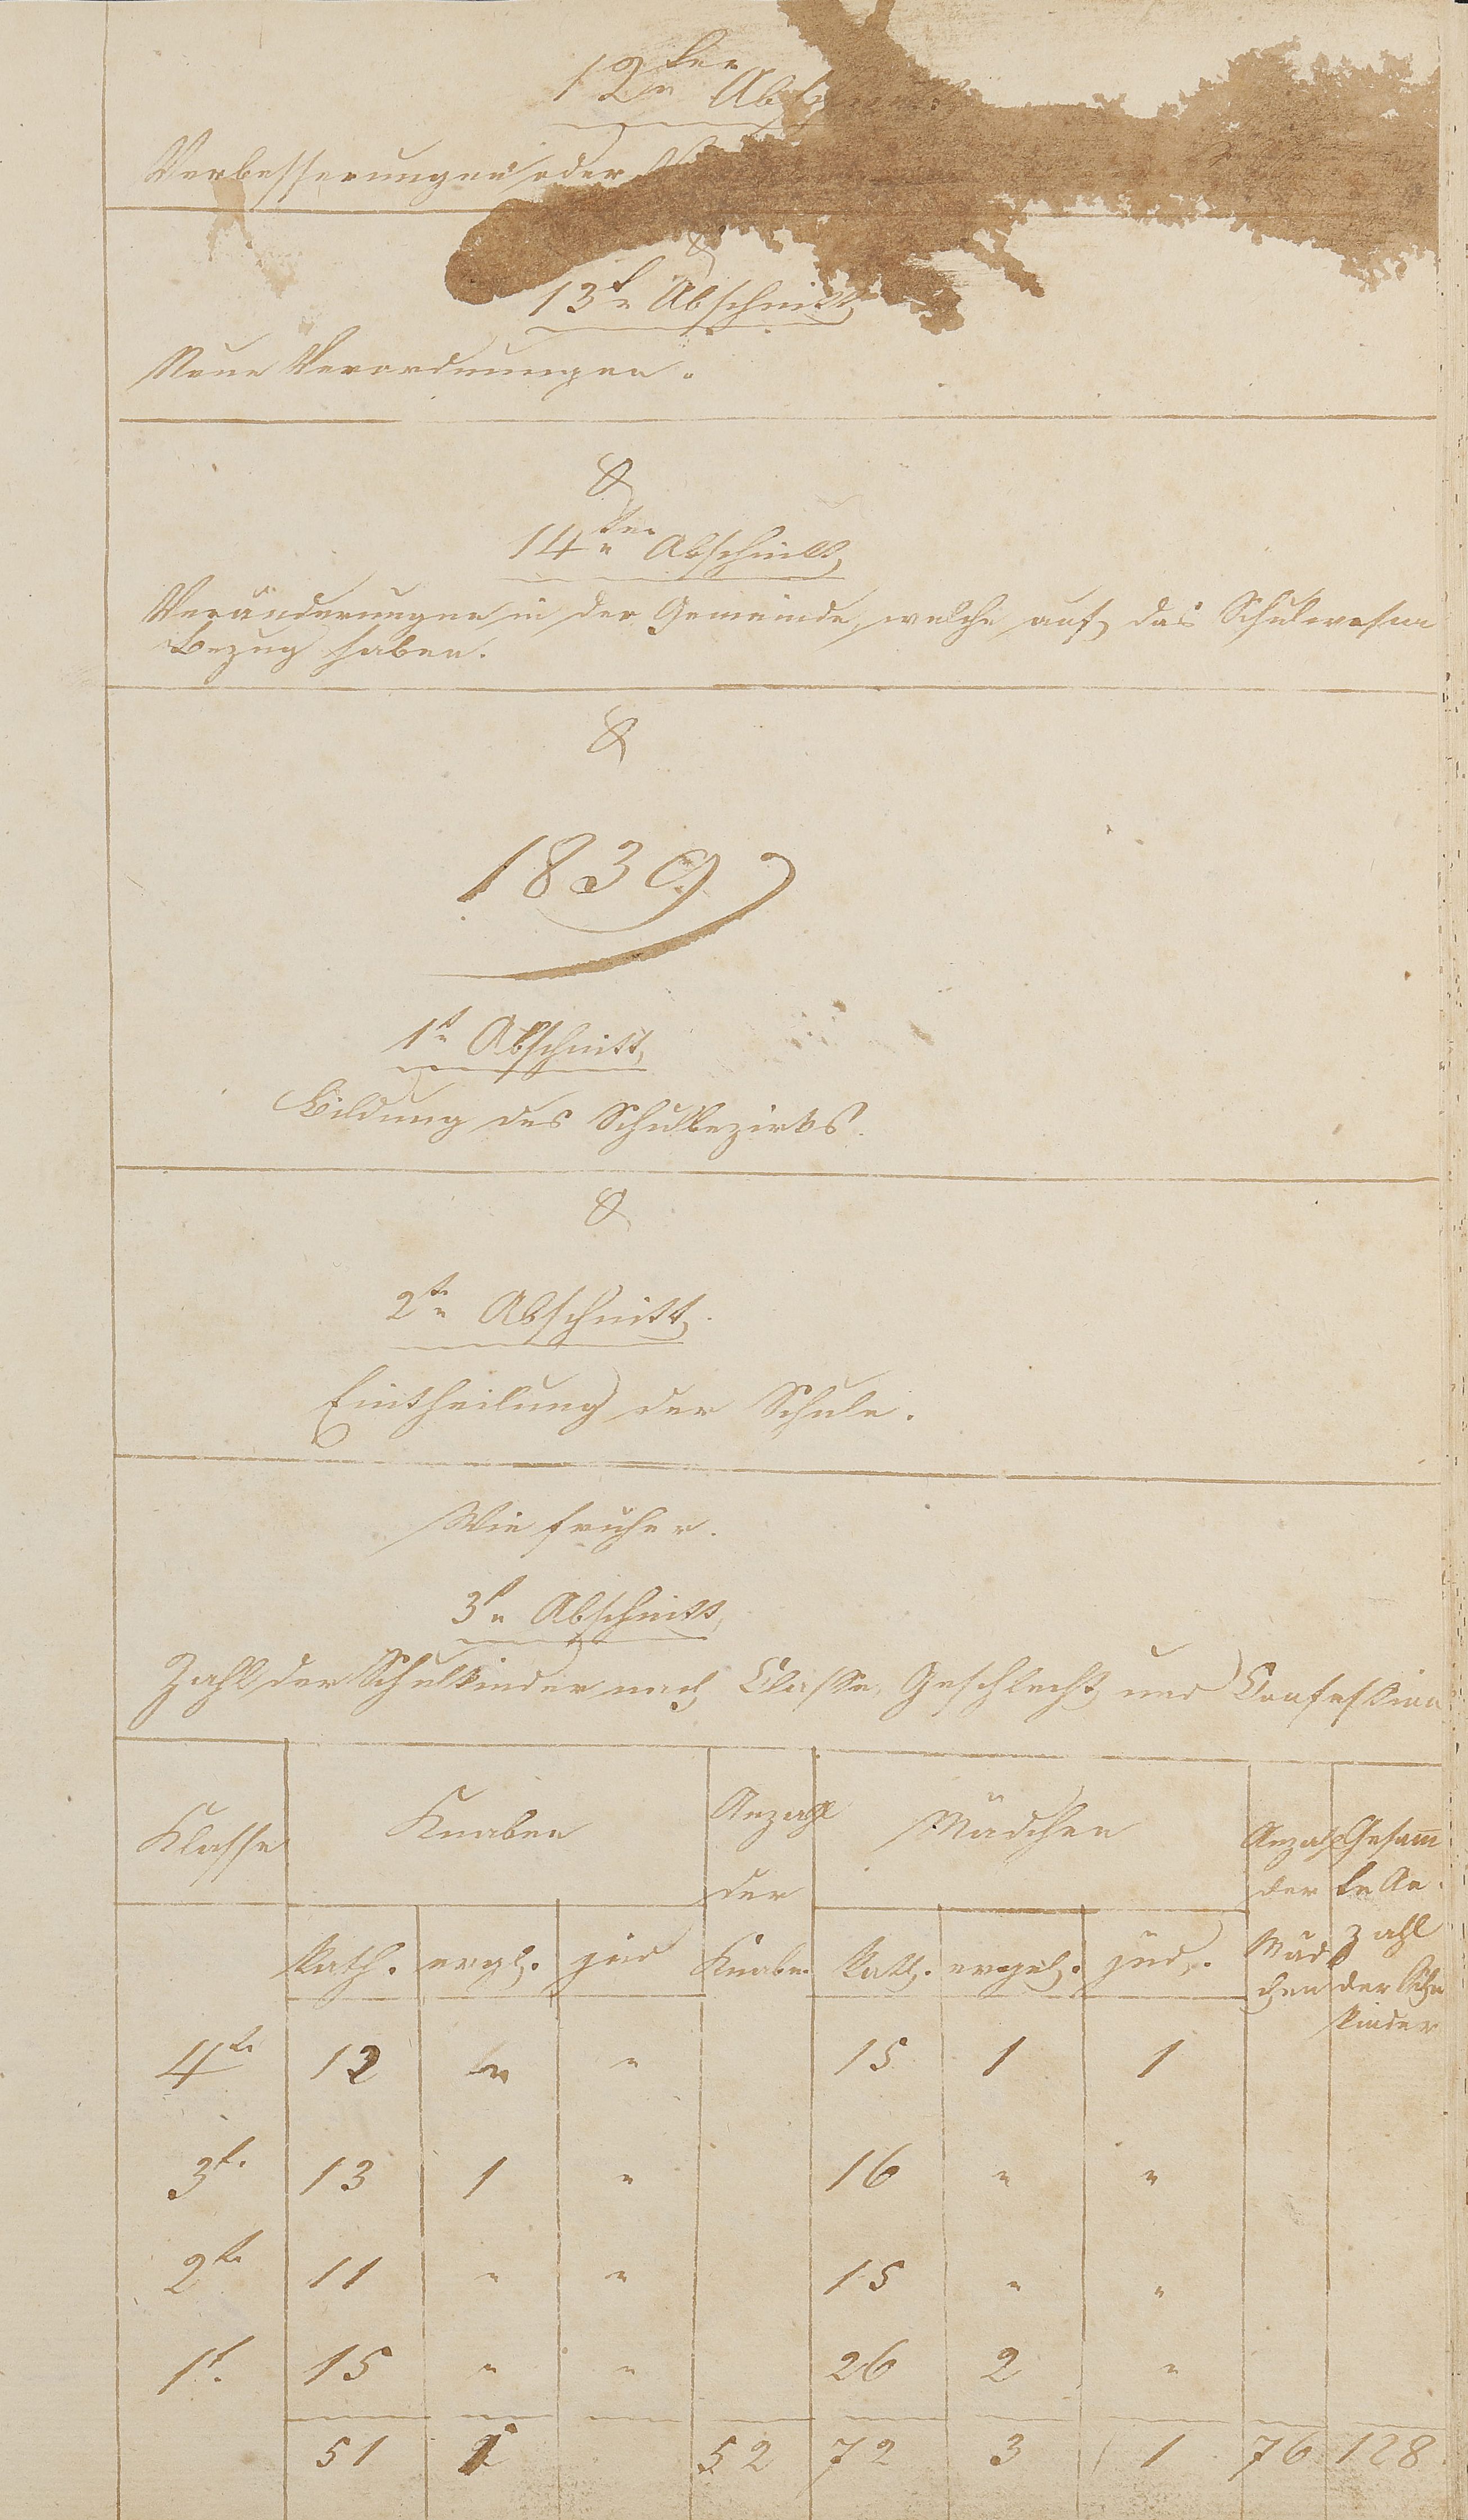 12ter Abschnitt
Verbesserungen oder
13t Abschnitt
Neue Verordnungen.
14ter Abschnitt
Veränderungen in der Gemeinde, welche auf das Schulwesen
Bezug haben.
1839
1t Abschnitt
Bildung des Schulbezirks.
2te Abschnitt.
Eintheilung der Schule.
Wie früher.
3t Abschnitt
Zahl der Schulkinder nach Classe, Geschlecht und Confession
Klasse Knaben Anzahl der Knabe. Mädchen Anzahl der Mädchen Gesammte Anzahl der Schukinder
kath. evgl. jüd kath. evgel. jüd.
4te 12 " " 15 1 1
3t. 13 1 " 16 " "
2te 11 " " 15 " "
1t. 15 " " 26 2 "
51 1 52 72 3 1 76 128